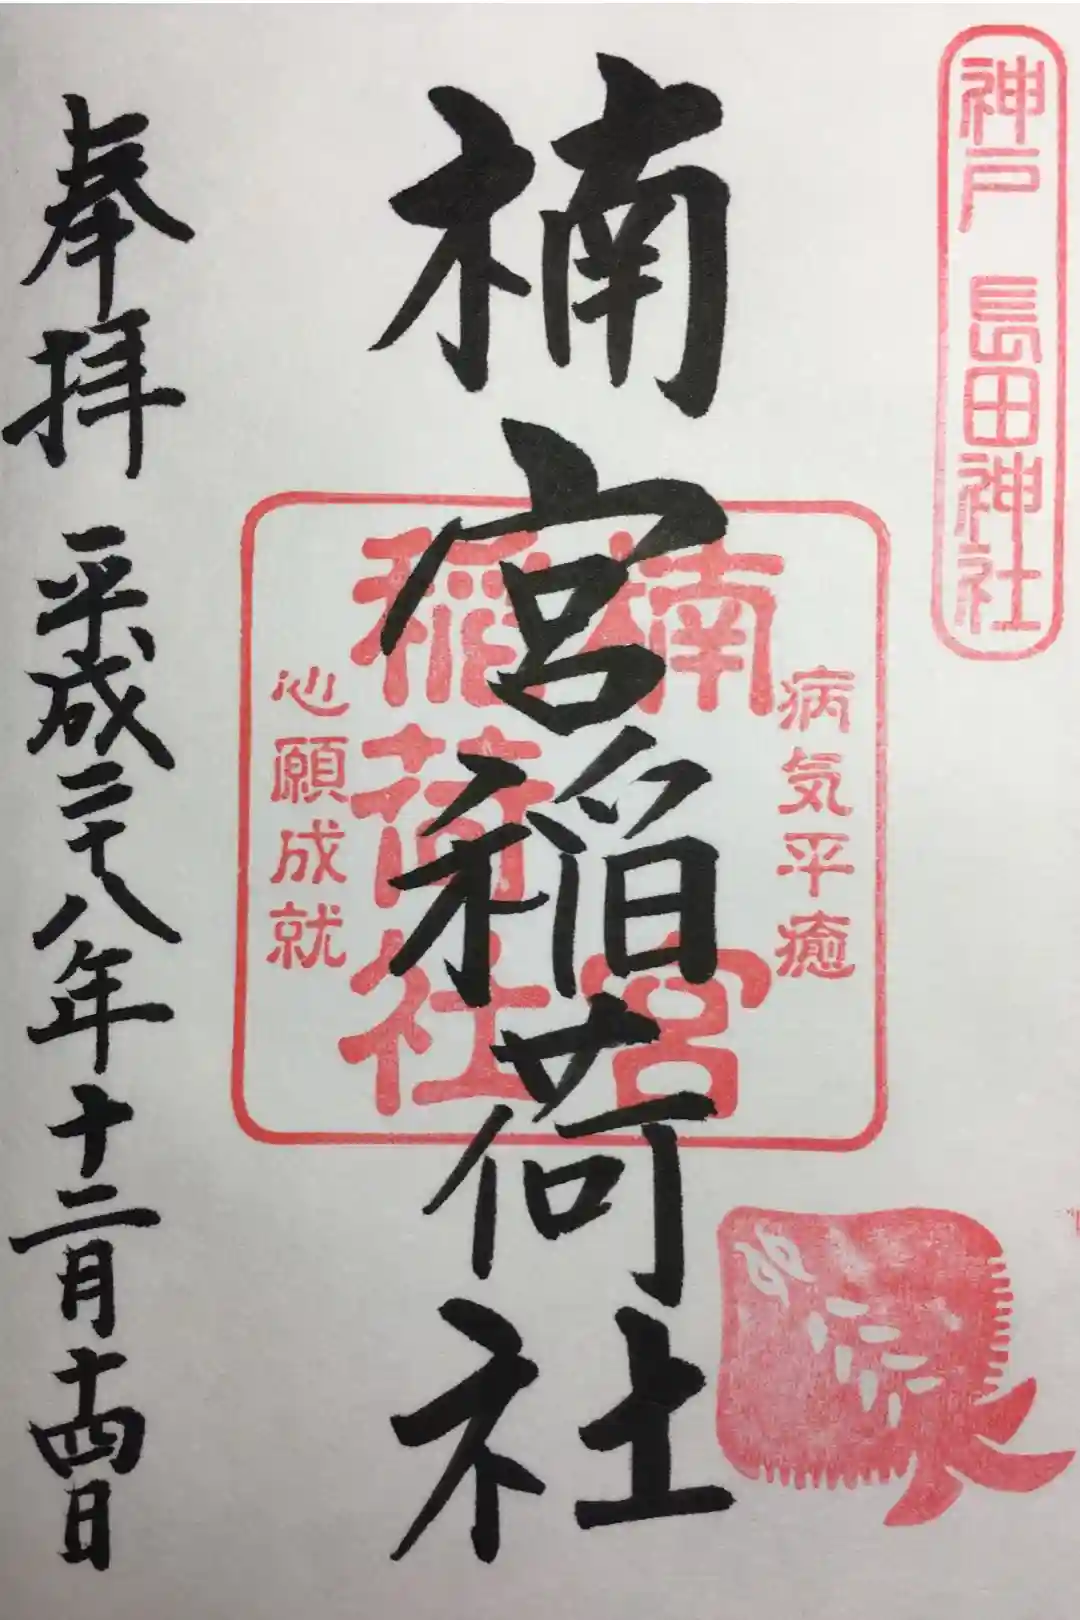 神戸 長田神社
病気平癒
楠宮
稲荷社
心願成就
楠宮稲荷社
奉拝 平成二十八年十二月十四日